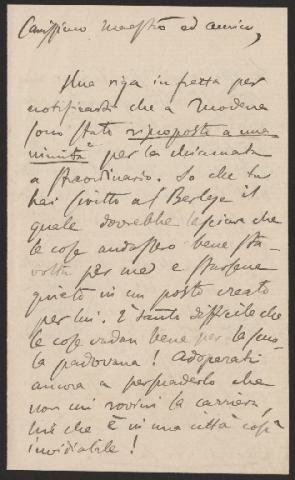 Carissimo maestro ed amico,
Una riga in fretta per
notificarti che a Modena
sono stato riproposto a una-
nimità per la chiamata
a straordinario. So che tu
hai scritto al Berlese il
quale dovrebbe lasciare che
le cose andassero bene sta-
volta per me e starsene
quieto in un posto creato
per lui. È tanto difficile che
le cose vadan bene per la scuo-
la padovana! Adoperati
ancora a persuaderlo che
non mi rovini la carriera,
lui che è in una città così
invidiabile!